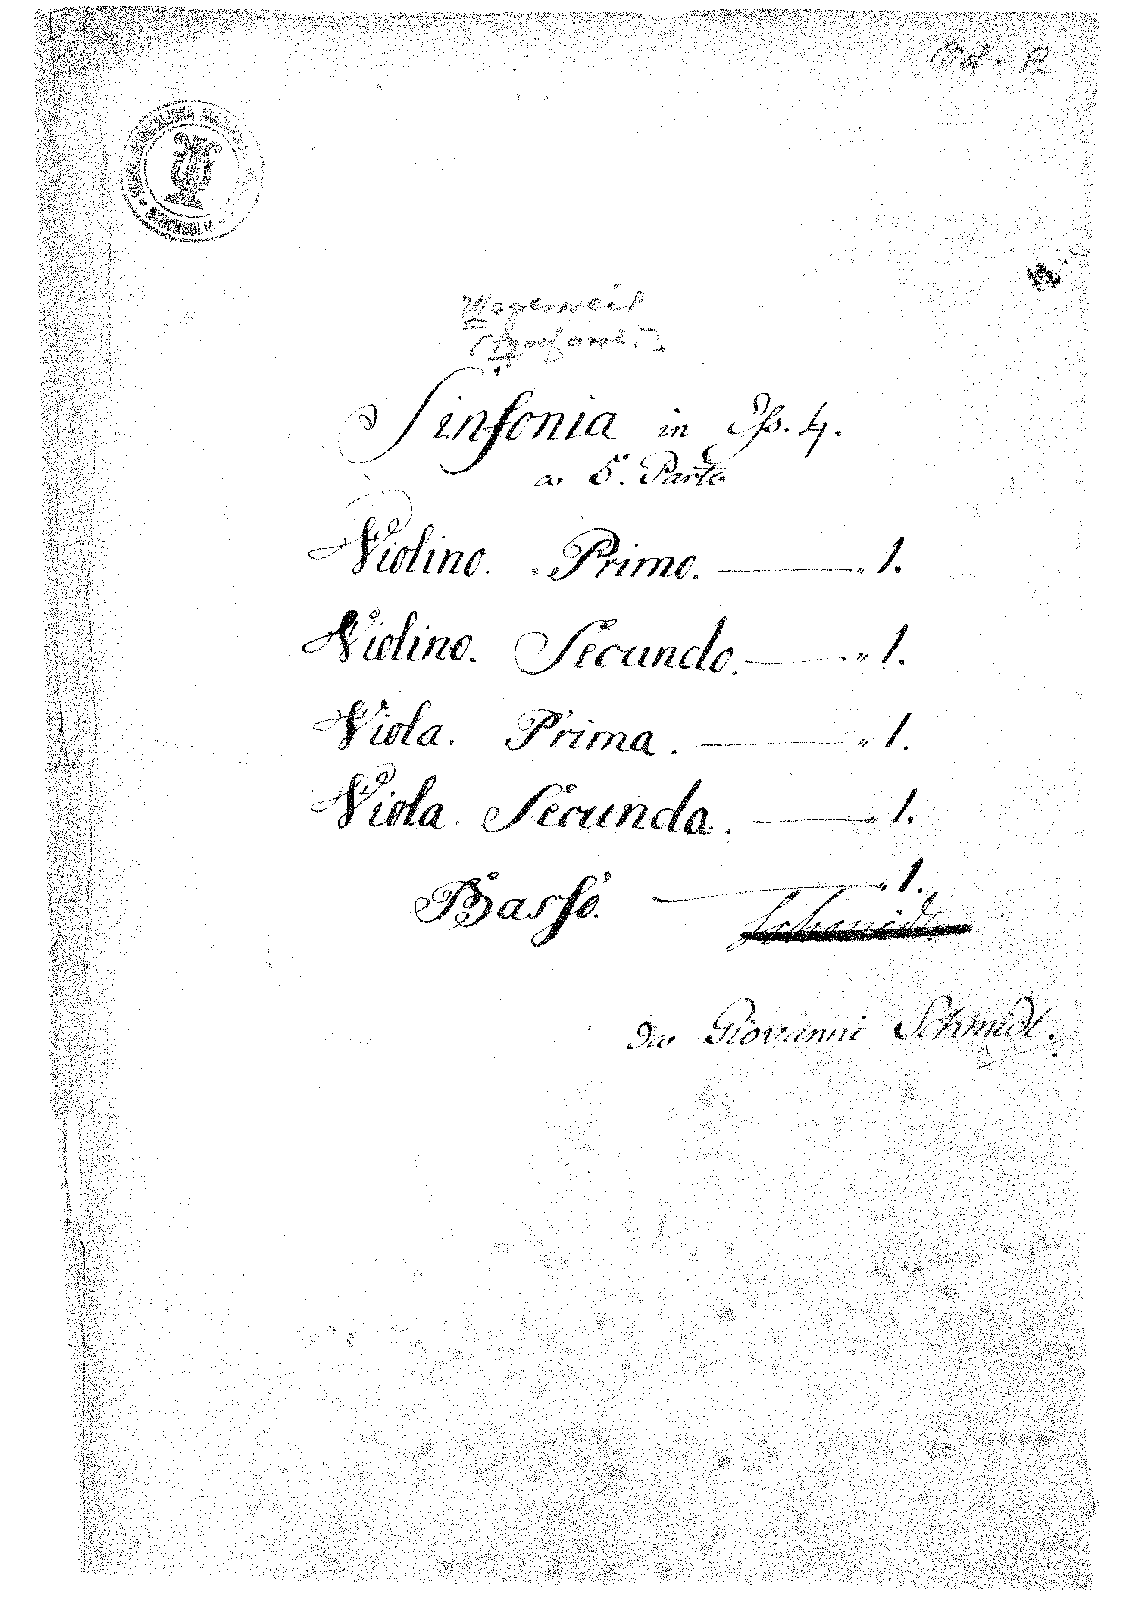 Sinfonia in
a 5. Parte
Violino. Primo. 1.
Violino. Secundo. 1.
Viola. Prima. 1.
Viola Secunda. 1.
Basso 1.
Schmidt
Da Giovanni Schmidt.